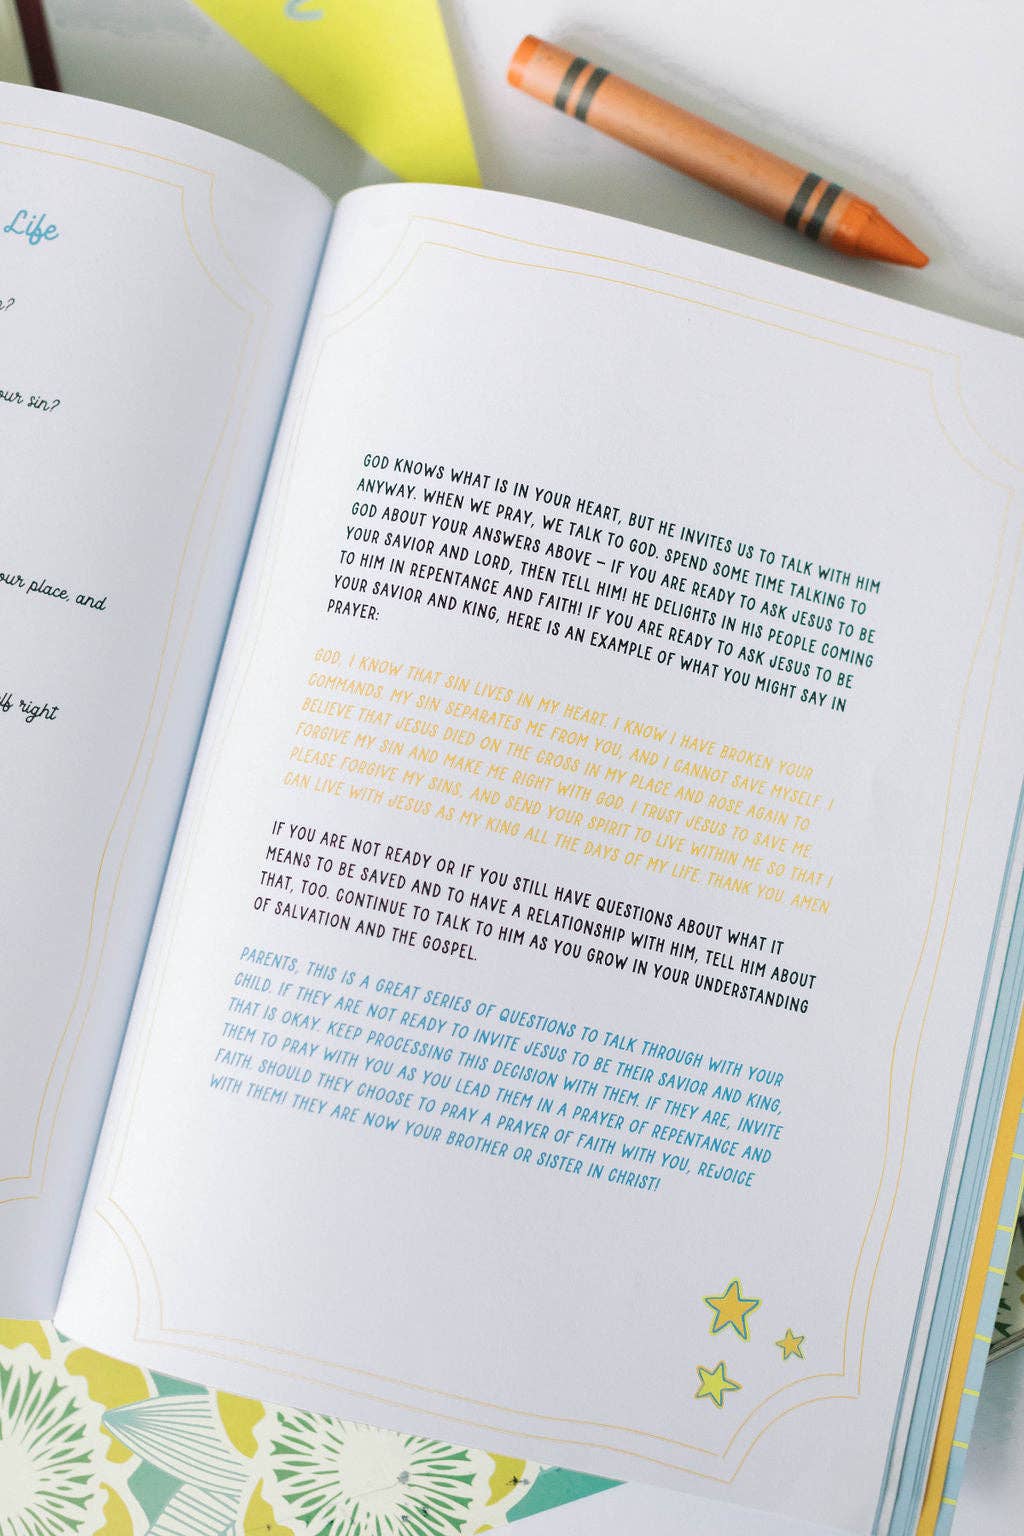 Life
our sin?
our place, and
right
GOD KNOWS WHAT IS IN YOUR HEART, BUT HE INVITES US TO TALK WITH HIM
ANYWAY. WHEN WE PRAY, WE TALK TO GOD. SPEND SOME TIME TALKING TO
GOD ABOUT YOUR ANSWERS ABOVE – IF YOU ARE READY TO ASK JESUS TO BE
YOUR SAVIOR AND LORD, THEN TELL HIM! HE DELIGHTS IN HIS PEOPLE COMING
TO HIM IN REPENTANCE AND FAITH! IF YOU ARE READY TO ASK JESUS TO BE
YOUR SAVIOR AND KING, HERE IS AN EXAMPLE OF WHAT YOU MIGHT SAY IN
PRAYER:
GOD, I KNOW THAT SIN LIVES IN MY HEART. I KNOW I HAVE BROKEN YOUR
COMMANDS. MY SIN SEPARATES ME FROM YOU, AND I CANNOT SAVE MYSELF. I
BELIEVE THAT JESUS DIED ON THE CROSS IN MY PLACE AND ROSE AGAIN TO
FORGIVE MY SIN AND MAKE ME RIGHT WITH GOD. I TRUST JESUS TO SAVE ME.
PLEASE FORGIVE MY SINS, AND SEND YOUR SPIRIT TO LIVE WITHIN ME SO THAT I
CAN LIVE WITH JESUS AS MY KING ALL THE DAYS OF MY LIFE. THANK YOU. AMEN
IF YOU ARE NOT READY OR IF YOU STILL HAVE QUESTIONS ABOUT WHAT IT
MEANS TO BE SAVED AND TO HAVE A RELATIONSHIP WITH HIM, TELL HIM ABOUT
THAT, TOO. CONTINUE TO TALK TO HIM AS YOU GROW IN YOUR UNDERSTANDING
OF SALVATION AND THE GOSPEL.
PARENTS, THIS IS A GREAT SERIES OF QUESTIONS TO TALK THROUGH WITH YOUR
CHILD. IF THEY ARE NOT READY TO INVITE JESUS TO BE THEIR SAVIOR AND KING,
THAT IS OKAY. KEEP PROCESSING THIS DECISION WITH THEM. IF THEY ARE, INVITE
THEM TO PRAY WITH YOU AS YOU LEAD THEM IN A PRAYER OF REPENTANCE AND
FAITH. SHOULD THEY CHOOSE TO PRAY A PRAYER OF FAITH WITH YOU, REJOICE
WITH THEM! THEY ARE NOW YOUR BROTHER OR SISTER IN CHRIST!